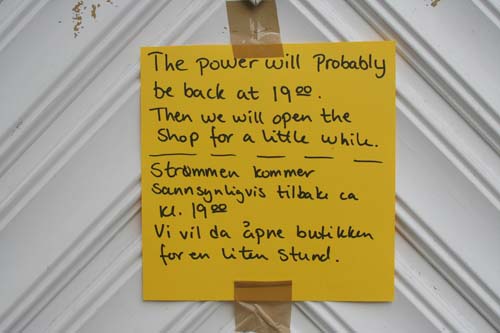 The power will Probably
be back at 19 00.
Then we will open the
Shop for a little while.
Strømmen kommer
sannsynligvis tilbake ca
kl. 19 00
Vi vil da åpne butikken
for en liten stund.